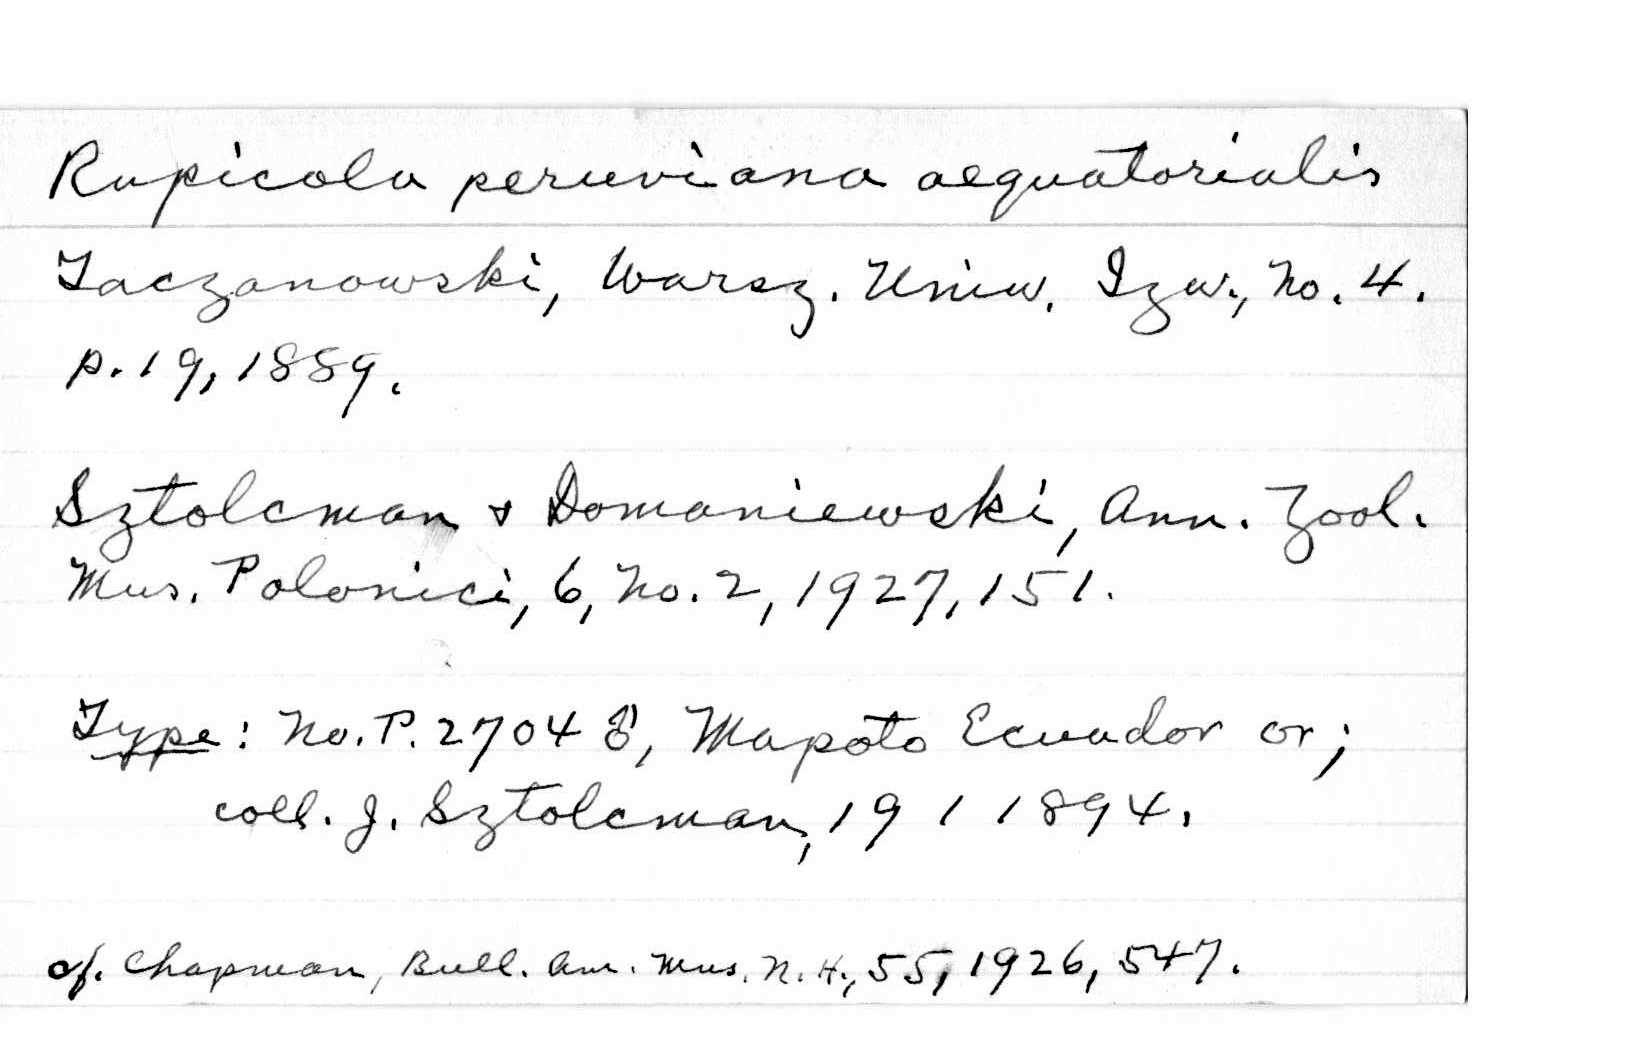 Rupicola peruviana aequatorialis
Taczanowski, Warsz. Uniw. Izw., No. 4.
p. 19, 1889.
Sztolcman & Domaniewski, Ann. Zool.
Mus. Polonici, 6, No. 2, 1927, 151.
Type: No. P. 2704 ♂, Mapoto Ecuador or;
coll. J. Sztolcman, 19 1 1894.
cf. Chapman, Bull. Am. Mus. N. H., 55, 1926, 547.